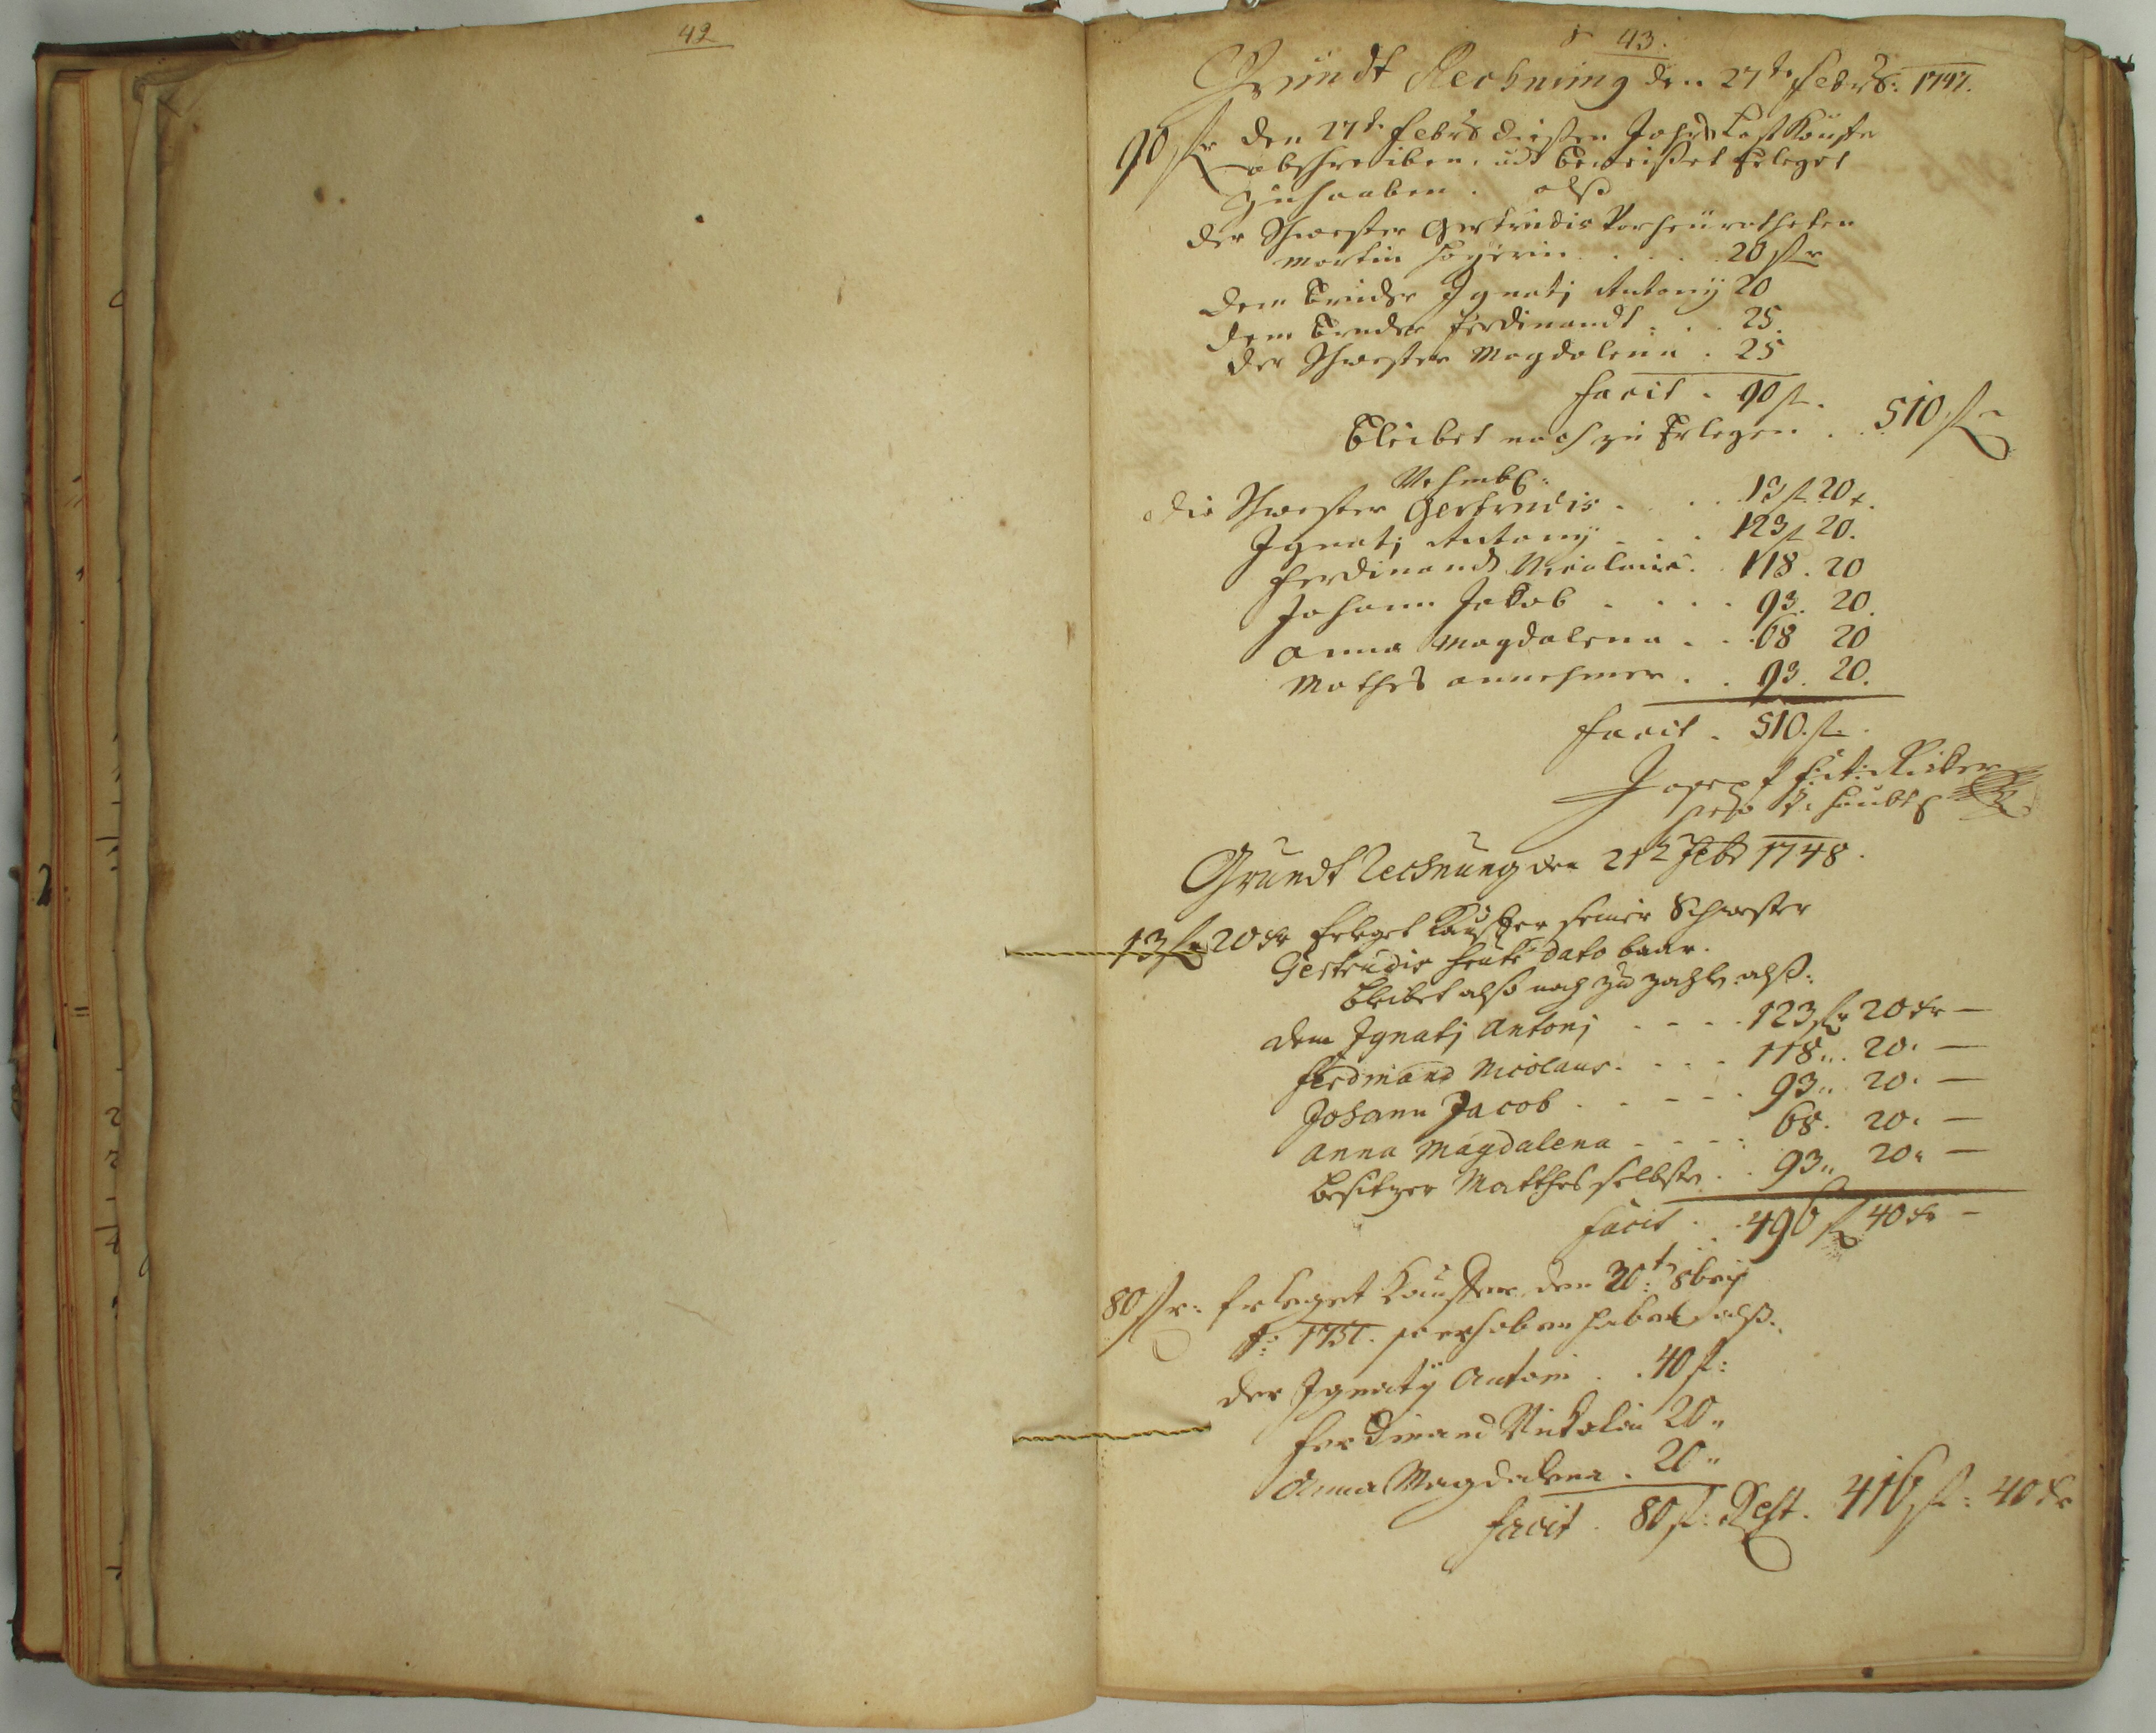 42
43.
Grundt Rechnung den 27te Febr: 1747.
90 fl den 27te Febr diesen Jahrs Last Kauffer
abschreiben, undt beweisset Erleget
zuhaaben. alß
der Schwester Gertrudis Verheüratheten
Martin 20 fl
dem Bruder Ignatj Antonÿ 20
dem Bruder Ferdinandt . . 25.
der Schwester Magdalena . 25
facit . 90 fl.
Bleibet noch zu Erlegen . 510 fl
Nehmbl:
die Schwester Gertrudis . . . 13 fl 20 x.
Ignatj Antonÿ . . . 123 fl 20.
Ferdinand Nicolaus . 118 . 20
Johann Jakob . . . . 93. 20.
Anna Magdalena . . 68 20
Mathes annehmer . . 93. 20.
facit . 510. fl.
Joseph
Grundt Rechnung den 21t Febr 1748.
13 fl 20 kr Erleget Kauffer seiner Schwester
Gertrudis heute dato baar.
bleibet also noch zu zahlen alß:
dem Ignatj Antonj . . . . 123 fl 20 kr —
Ferdinand Nicolaus . . . . 118 .. 20. —
Johann Jacob . . . . . 93 .. 20. —
Anna Magdalena . . . . 68. 20. —
besitzer Matthes selbsten . . 93 .. 20. —
facit . . 496 fl 40 kr —
80 fl: Erleget Kauffer den 30t: 8bris
Ao: 1751. so erhoben haben alß.
der Ignatÿ Antoni . . 40 fl:
Ferdinand Nikolaus 20 ..
Anna Magdalena . 20 ..
facit . 80 fl: Rest. 416 fl: 40 kr